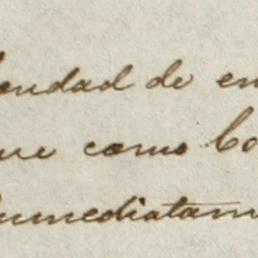 bondad de en
que como Co
inmediatam